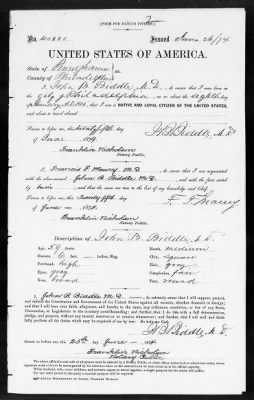 [FORM FOR NATIVE CITIZEN.]
No. 40880 Issued June 26/74
UNITED STATES OF AMERICA.
State of Pennsylvania
County of Philadelphia ss.
I, John B. Biddle M.D., do swear that I was born in the
city of Philadelphia on or about the eighth day of
January A.D. 18, that I am a NATIVE AND LOYAL CITIZEN OF THE UNITED STATES,
and about to travel abroad.
Sworn to before me, this twenty fifth day J B Biddle, M.D.
of June 1874
Franklin Nicholson
Notary Public.
I Francis F. Maury M.D. am acquainted
with the aforenamed John B. Biddle M.D. and with the facts stated
by him and that the same are true to the best of my knowledge and belief.
Sworn to before me, this twenty fifth day F. F. Maury
of June 1874.
Franklin Nicholson
Notary Public.
Description of John B. Biddle M.D.
Age: 59 years. Mouth: medium
Stature: 6 feet inches, Eng. Chin: square
Forehead: high Hair: gray
Eyes: gray Complexion: fair
Nose: broad Face: round
I, John B. Biddle M.D., do solemnly swear that I will support, protect,
and defend the Constitution and Government of the United States against all enemies, whether domestic or foreign;
and that I will bear true faith, allegiance, and loyalty to the same, any ordinance, resolution, or law of any State,
Convention, or Legislature to the contrary notwithstanding; and further, that I do this with a full determination,
pledge, and purpose, without any mental reservation or evasion whatsoever; and further, that I will well and faith-
fully perform all the duties which may be required of me by law: So help me God.
J B Biddle, M.D.
Sworn to before me, this 25th day of June 1874
Franklin Nicholson
Notary Public